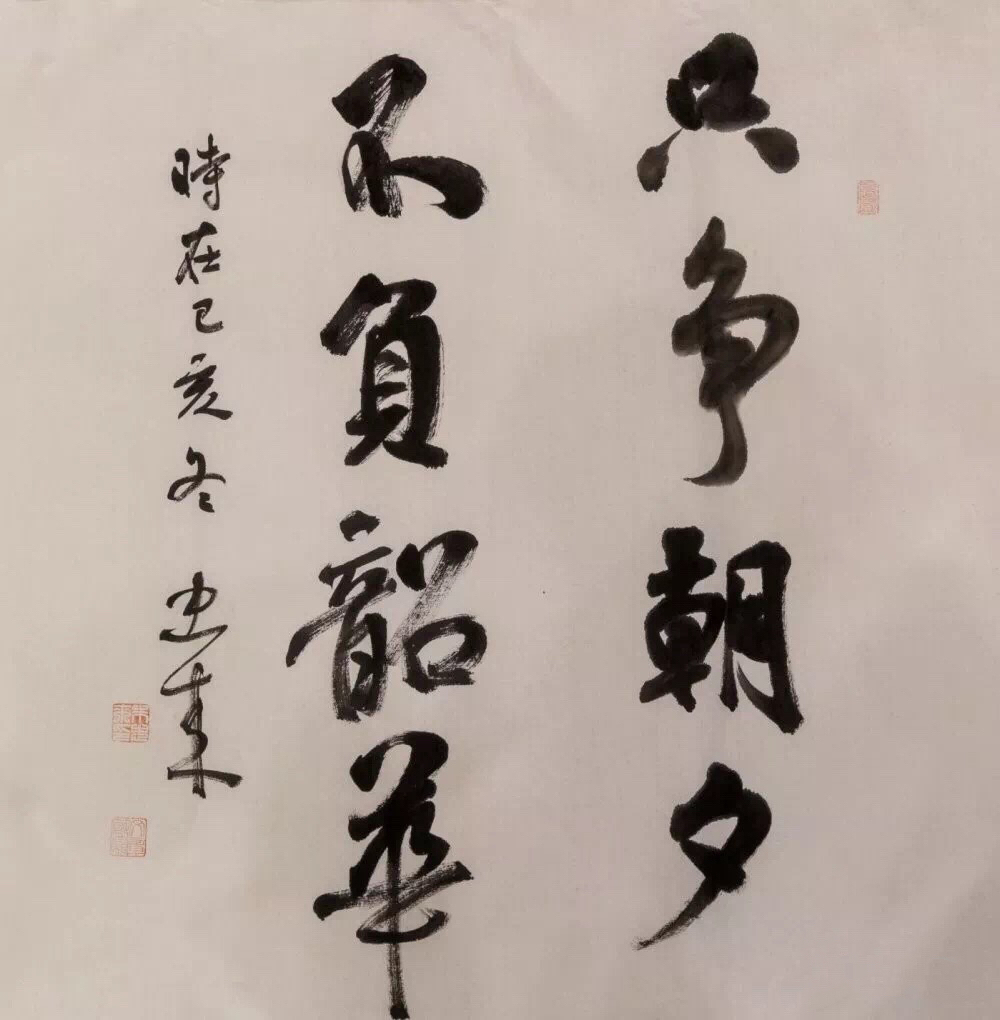 只争朝夕
不負韶華
時在己亥冬 忠来